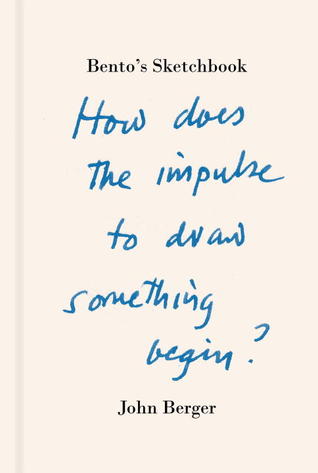 Bento's Sketchbook
How does
the impulse
to draw
something
begin?
John Berger